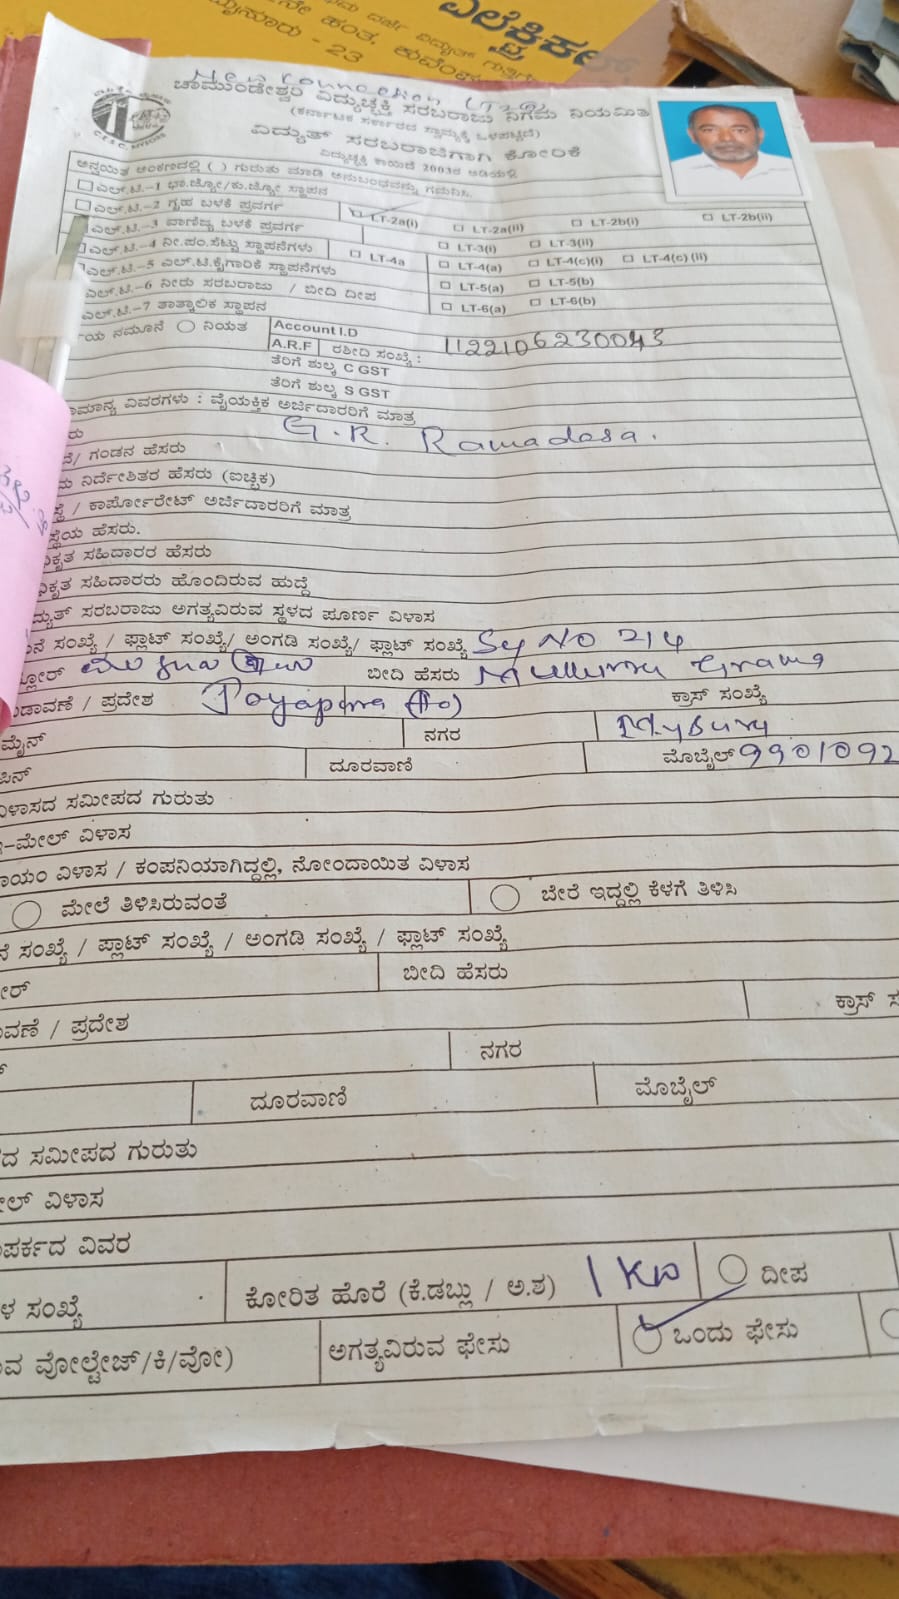 ಎಲೆಕ್ರಿಕಲ್
New Connection
ಚಾಮುಂಡೇಶ್ವರಿ ವಿದ್ಯುಚ್ಛಕ್ತಿ ಸರಬರಾಜು ನಿಗಮ ನಿಯಮಿತ
(ಕರ್ನಾಟಕ ಸರ್ಕಾರದ ಸ್ವಾಮ್ಯಕ್ಕೆ ಒಳಪಟ್ಟಿದೆ)
ವಿದ್ಯುತ್ ಸರಬರಾಜಿಗಾಗಿ ಕೋರಿಕೆ
ವಿದ್ಯುಚ್ಛಕ್ತಿ ಕಾಯಿದೆ 2003ರ ಅಡಿಯಲ್ಲಿ
ಅನ್ವಯಿತ ಅಂಕಣದಲ್ಲಿ ( ) ಗುರುತು ಮಾಡಿ ಅನುಬಂಧವನ್ನು ಗಮನಿಸಿ
ಎಲ್.ಟಿ.–1 ಭಾ.ಜ್ಯೋ/ಕು.ಜ್ಯೋ ಸ್ಥಾಪನ
ಎಲ್.ಟಿ.–2 ಗೃಹ ಬಳಕೆ ಪ್ರವರ್ಗ LT-2a(i) LT-2a(ii) LT-2b(i) LT-2b(ii)
ಎಲ್.ಟಿ.–3 ವಾಣಿಜ್ಯ ಬಳಕೆ ಪ್ರವರ್ಗ LT-3(i) LT-3(ii)
ಎಲ್.ಟಿ.–4 ನೀ.ಪಂ.ಸೆಟ್ಟು ಸ್ಥಾಪನೆಗಳು LT-4a LT-4(a) LT-4(c)(i) LT-4(c)(ii)
ಎಲ್.ಟಿ.–5 ಎಲ್.ಟಿ.ಕೈಗಾರಿಕೆ ಸ್ಥಾಪನೆಗಳು LT-5(a) LT-5(b)
ಎಲ್.ಟಿ.–6 ನೀರು ಸರಬರಾಜು / ಬೀದಿ ದೀಪ LT-6(a) LT-6(b)
ಎಲ್.ಟಿ.–7 ತಾತ್ಕಾಲಿಕ ಸ್ಥಾಪನ
ಯ ನಮೂನೆ ನಿಯತ Account I.D
A.R.F ರಶೀದಿ ಸಂಖ್ಯೆ : 1122106230043
ತೆರಿಗೆ ಶುಲ್ಕ C GST
ತೆರಿಗೆ ಶುಲ್ಕ S GST
ಾಮಾನ್ಯ ವಿವರಗಳು : ವೈಯಕ್ತಿಕ ಅರ್ಜಿದಾರರಿಗೆ ಮಾತ್ರ
ರು G.R. Ramadasa.
ಗಂಡನ ಹೆಸರು
ನಿರ್ದೇಶಿತರ ಹೆಸರು (ಐಚ್ಛಿಕ)
/ ಕಾರ್ಪೋರೇಟ್ ಅರ್ಜಿದಾರರಿಗೆ ಮಾತ್ರ
ಸ್ಥೆಯ ಹೆಸರು.
ಿಕೃತ ಸಹಿದಾರರ ಹೆಸರು
ಿಕೃತ ಸಹಿದಾರರು ಹೊಂದಿರುವ ಹುದ್ದೆ
ದ್ಯುತ್ ಸರಬರಾಜು ಅಗತ್ಯವಿರುವ ಸ್ಥಳದ ಪೂರ್ಣ ವಿಳಾಸ
ನೆ ಸಂಖ್ಯೆ / ಫ್ಲಾಟ್ ಸಂಖ್ಯೆ/ ಅಂಗಡಿ ಸಂಖ್ಯೆ/ ಫ್ಲಾಟ್ ಸಂಖ್ಯೆ Sy No 214
ಲೋರ್ ಬೀದಿ ಹೆಸರು Mulluru Grama
ಡಾವಣೆ / ಪ್ರದೇಶ Jayapura (Ho) ಕ್ರಾಸ್ ಸಂಖ್ಯೆ
ಮೈನ್ ನಗರ Mysuru
ಪಿನ್ ದೂರವಾಣಿ ಮೊಬೈಲ್ 9901092
ವಿಳಾಸದ ಸಮೀಪದ ಗುರುತು
–ಮೇಲ್ ವಿಳಾಸ
ಾಯಂ ವಿಳಾಸ / ಕಂಪನಿಯಾಗಿದ್ದಲ್ಲಿ, ನೋಂದಾಯಿತ ವಿಳಾಸ
ಮೇಲೆ ತಿಳಿಸಿರುವಂತೆ ಬೇರೆ ಇದ್ದಲ್ಲಿ ಕೆಳಗೆ ತಿಳಿಸಿ
ನೆ ಸಂಖ್ಯೆ / ಪ್ಲಾಟ್ ಸಂಖ್ಯೆ / ಅಂಗಡಿ ಸಂಖ್ಯೆ / ಫ್ಲಾಟ್ ಸಂಖ್ಯೆ
ೋರ್ ಬೀದಿ ಹೆಸರು
ಾವಣೆ / ಪ್ರದೇಶ ಕ್ರಾಸ್ ಸ
ನಗರ
ದೂರವಾಣಿ ಮೊಬೈಲ್
ದ ಸಮೀಪದ ಗುರುತು
ೇಲ್ ವಿಳಾಸ
ಪರ್ಕದ ವಿವರ
ಳ ಸಂಖ್ಯೆ ಕೋರಿತ ಹೊರೆ (ಕೆ.ಡಬ್ಲು / ಅ.ಶ) 1 KW ದೀಪ
ುವ ವೋಲ್ಟೇಜ್/ಕಿ/ವೋ) ಅಗತ್ಯವಿರುವ ಫೇಸು ಒಂದು ಫೇಸು